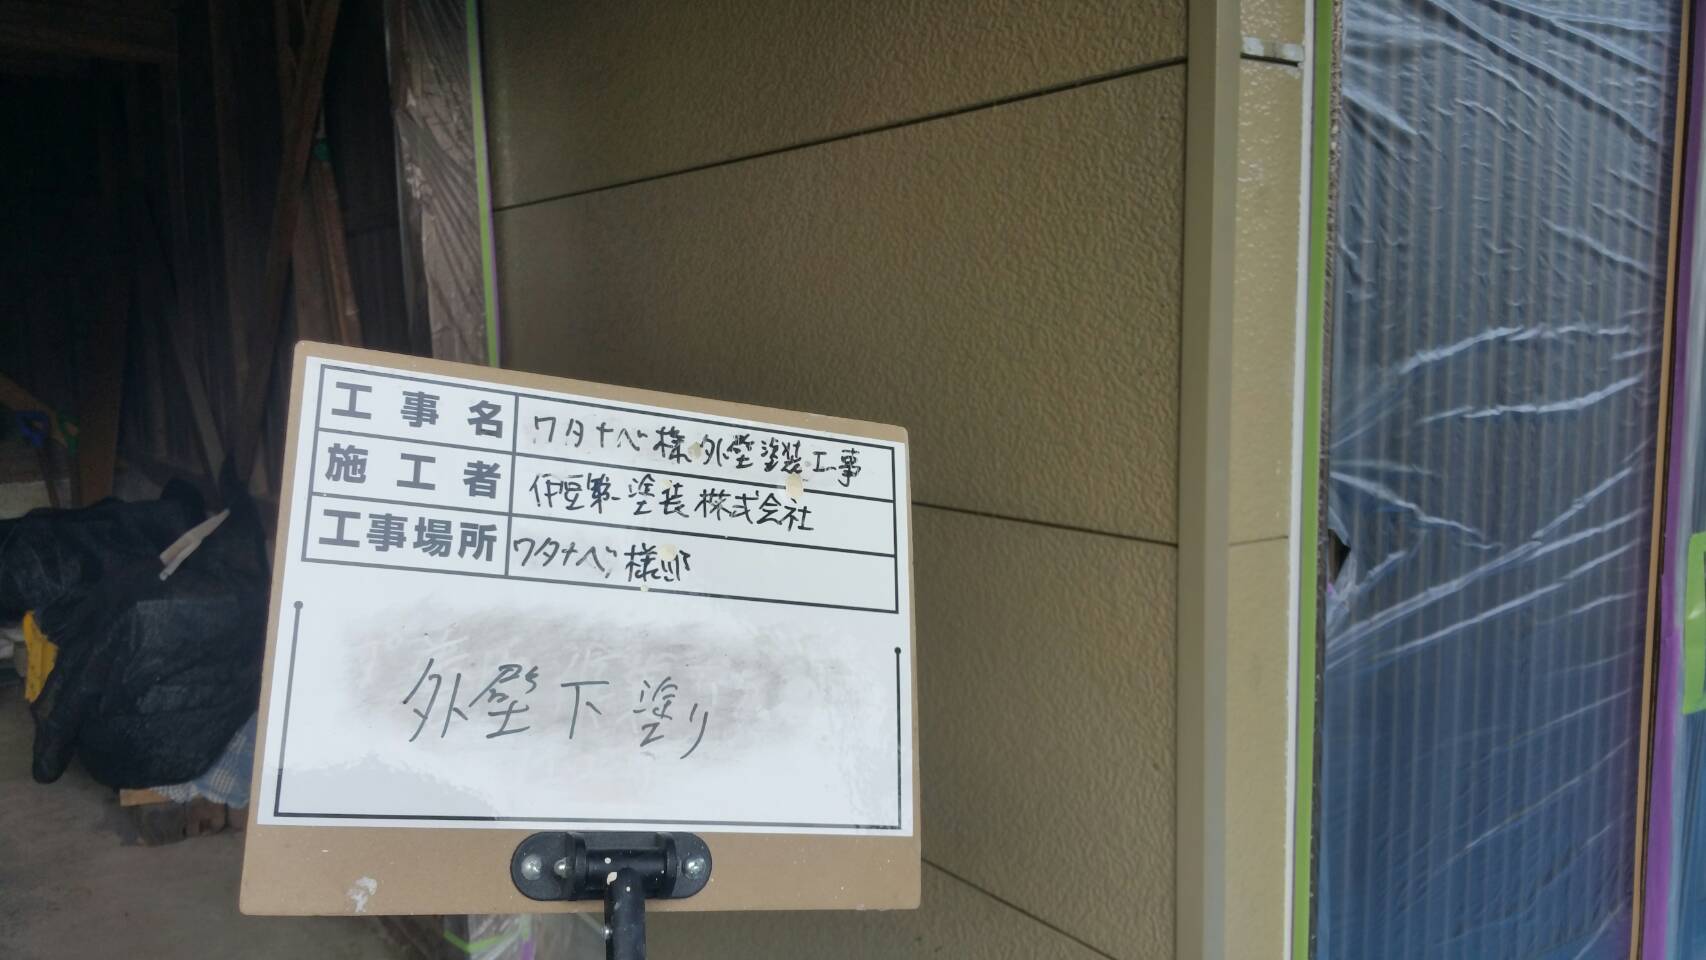 工事名 ワタナベ様外壁塗装工事
施工者 伊豆第一塗装株式会社
工事場所 ワタナベ様邸
外壁下塗り